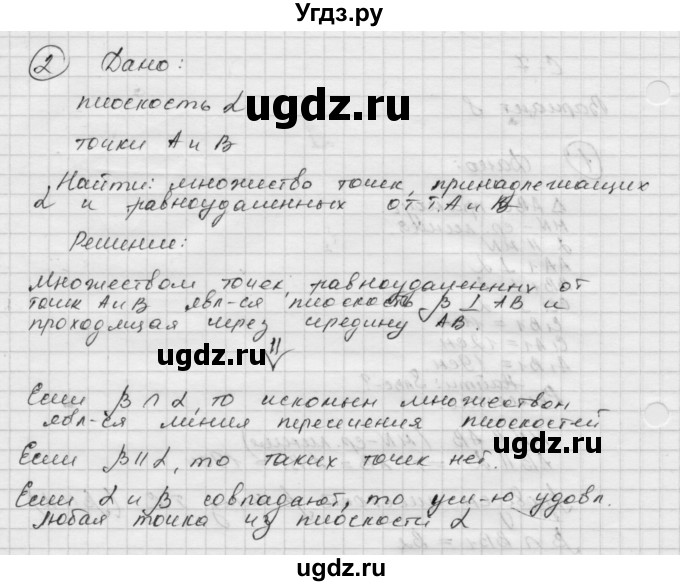 Угдз.ру
② Дано:
плоскость α
ugdz.ru
точки А и В
Найти: множество точек, принадлежащих
α и равноудаленных от т А и В
Решение:
ugdz.ru
Множеством точек, равноудаленных от
точек А и В явл-ся плоскость β ⊥ АВ и
проходящая через середину АВ.
ugdz.ru
⇓
Если β ∩ α, то искомым множеством
явл-ся линия пересечения плоскостей
Если β || α, то таких точек нет.
ugdz.ru
Если α и β совпадают, то усл-ю удовл.
любая точка из плоскости α
ugdz.ru